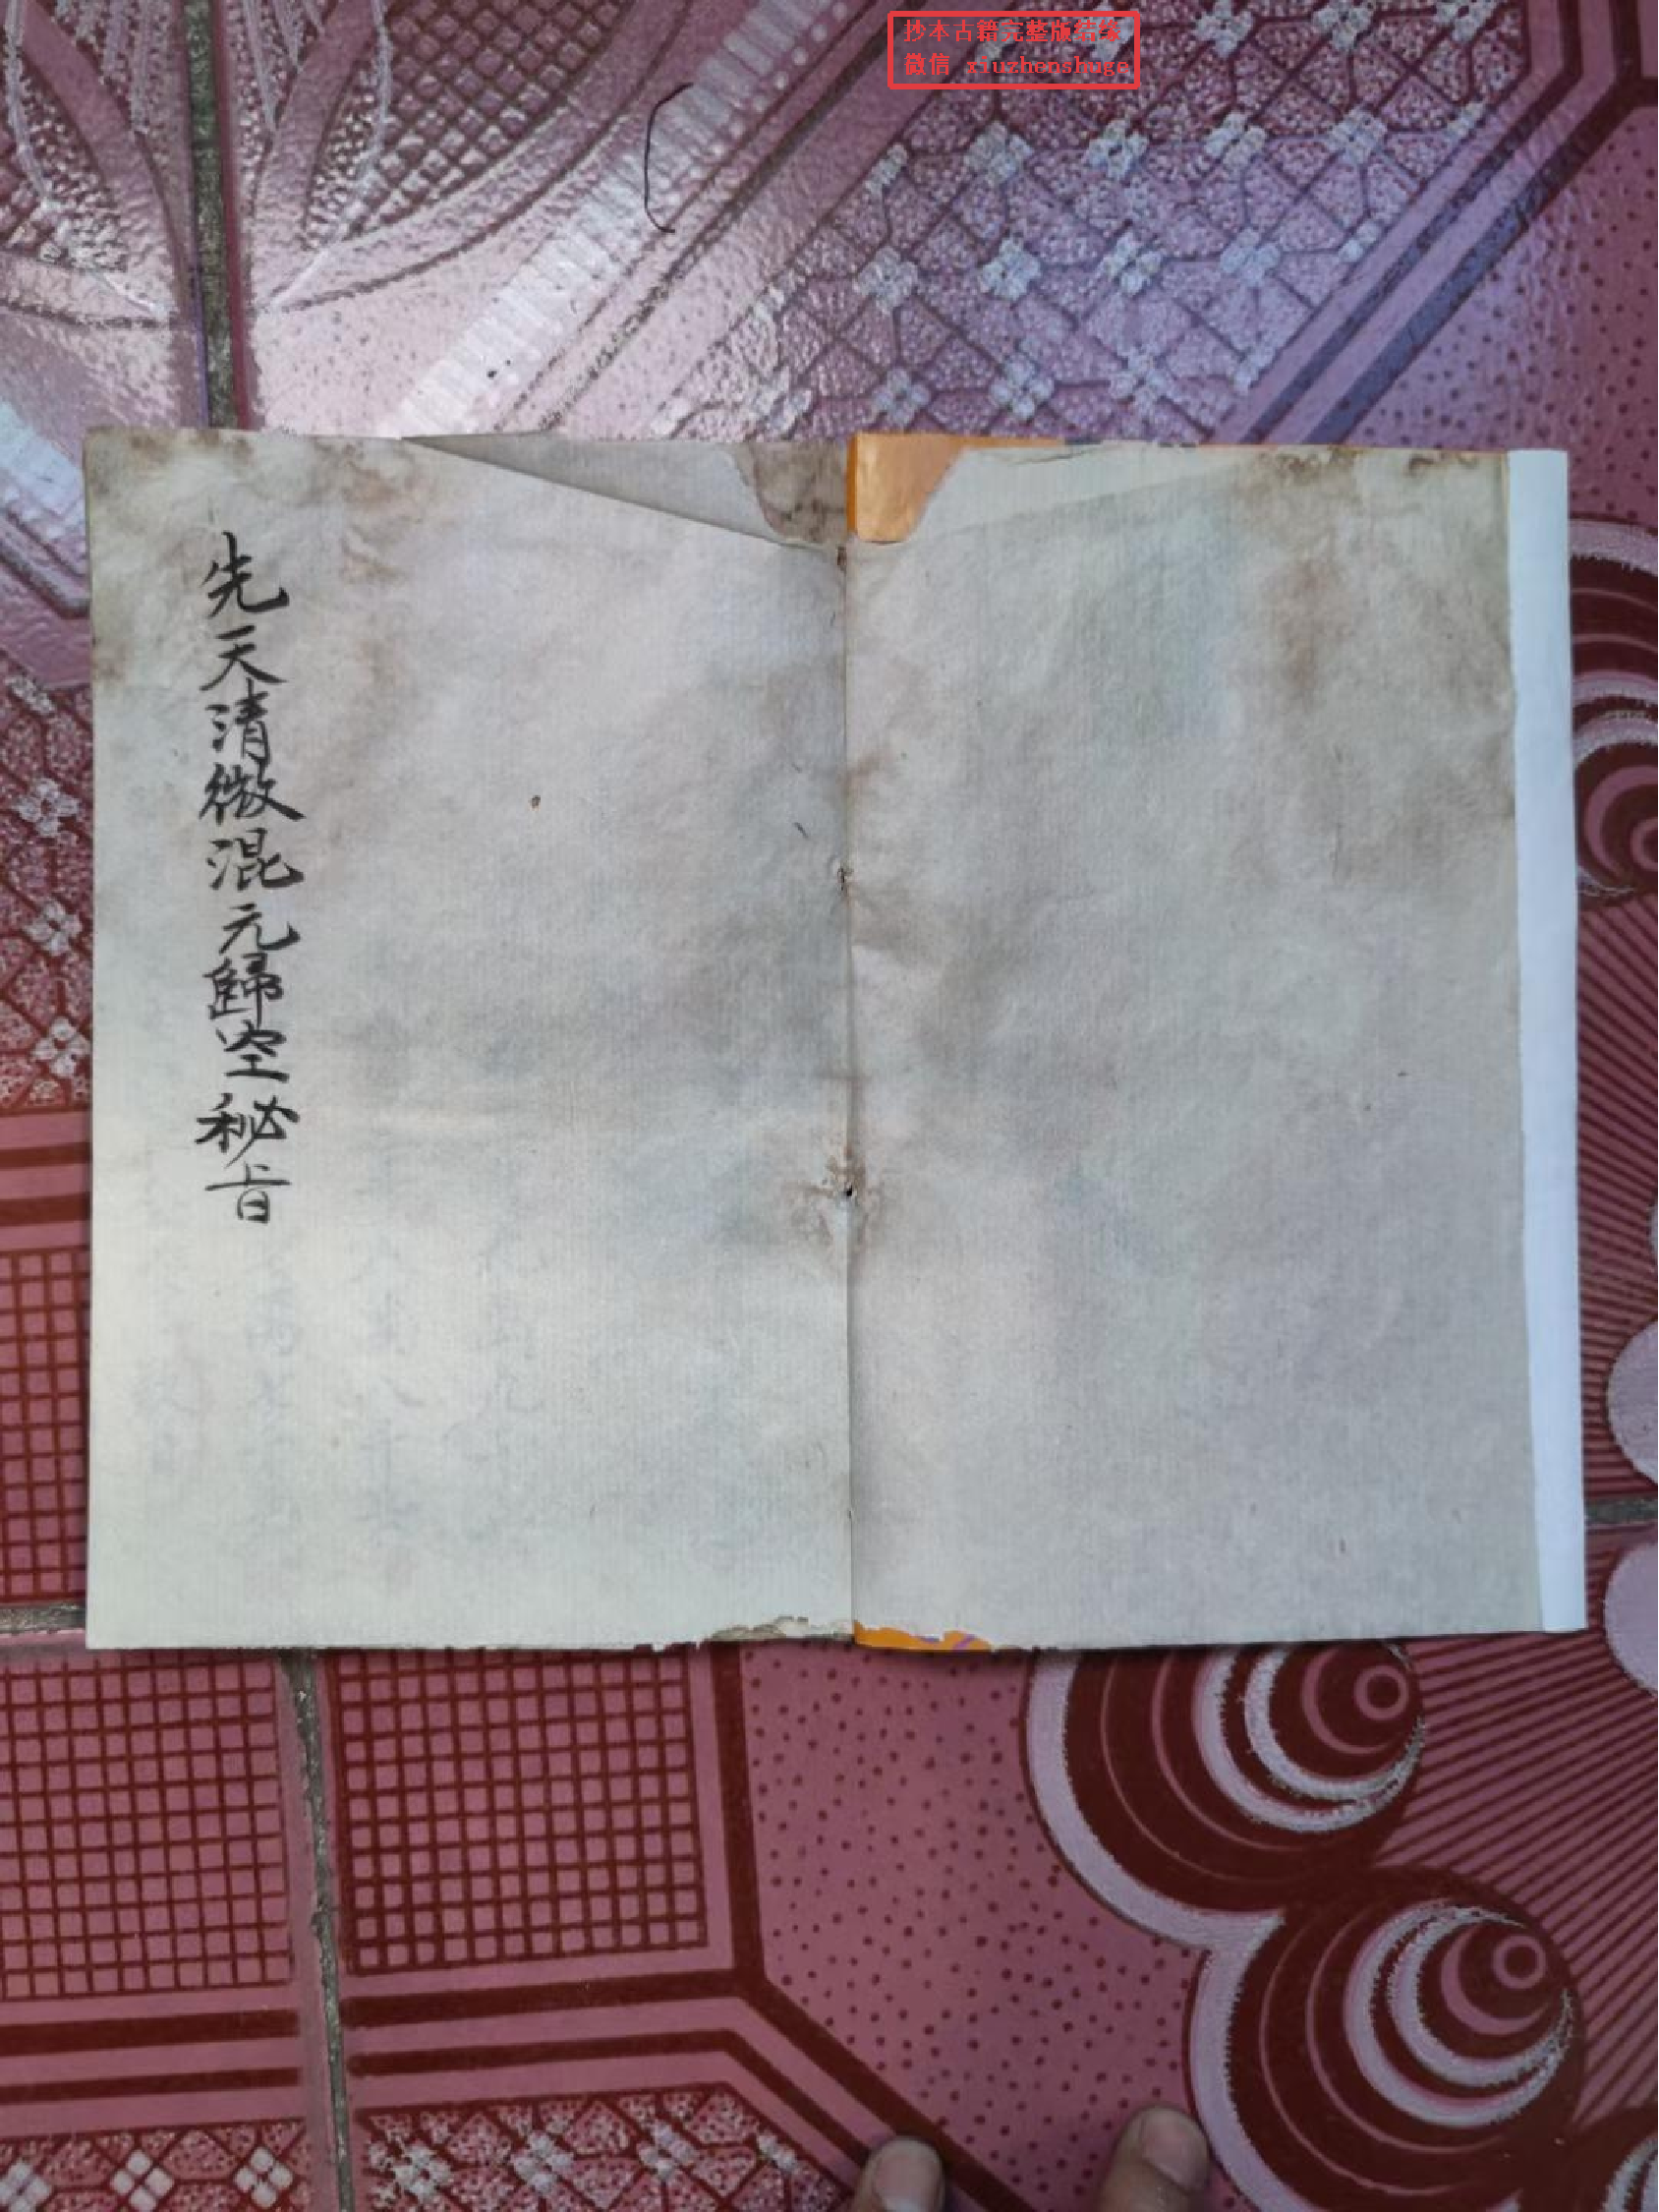 抄本古籍完整版结缘
微信 xiuzhenshuge
先天清微混元歸空秘旨